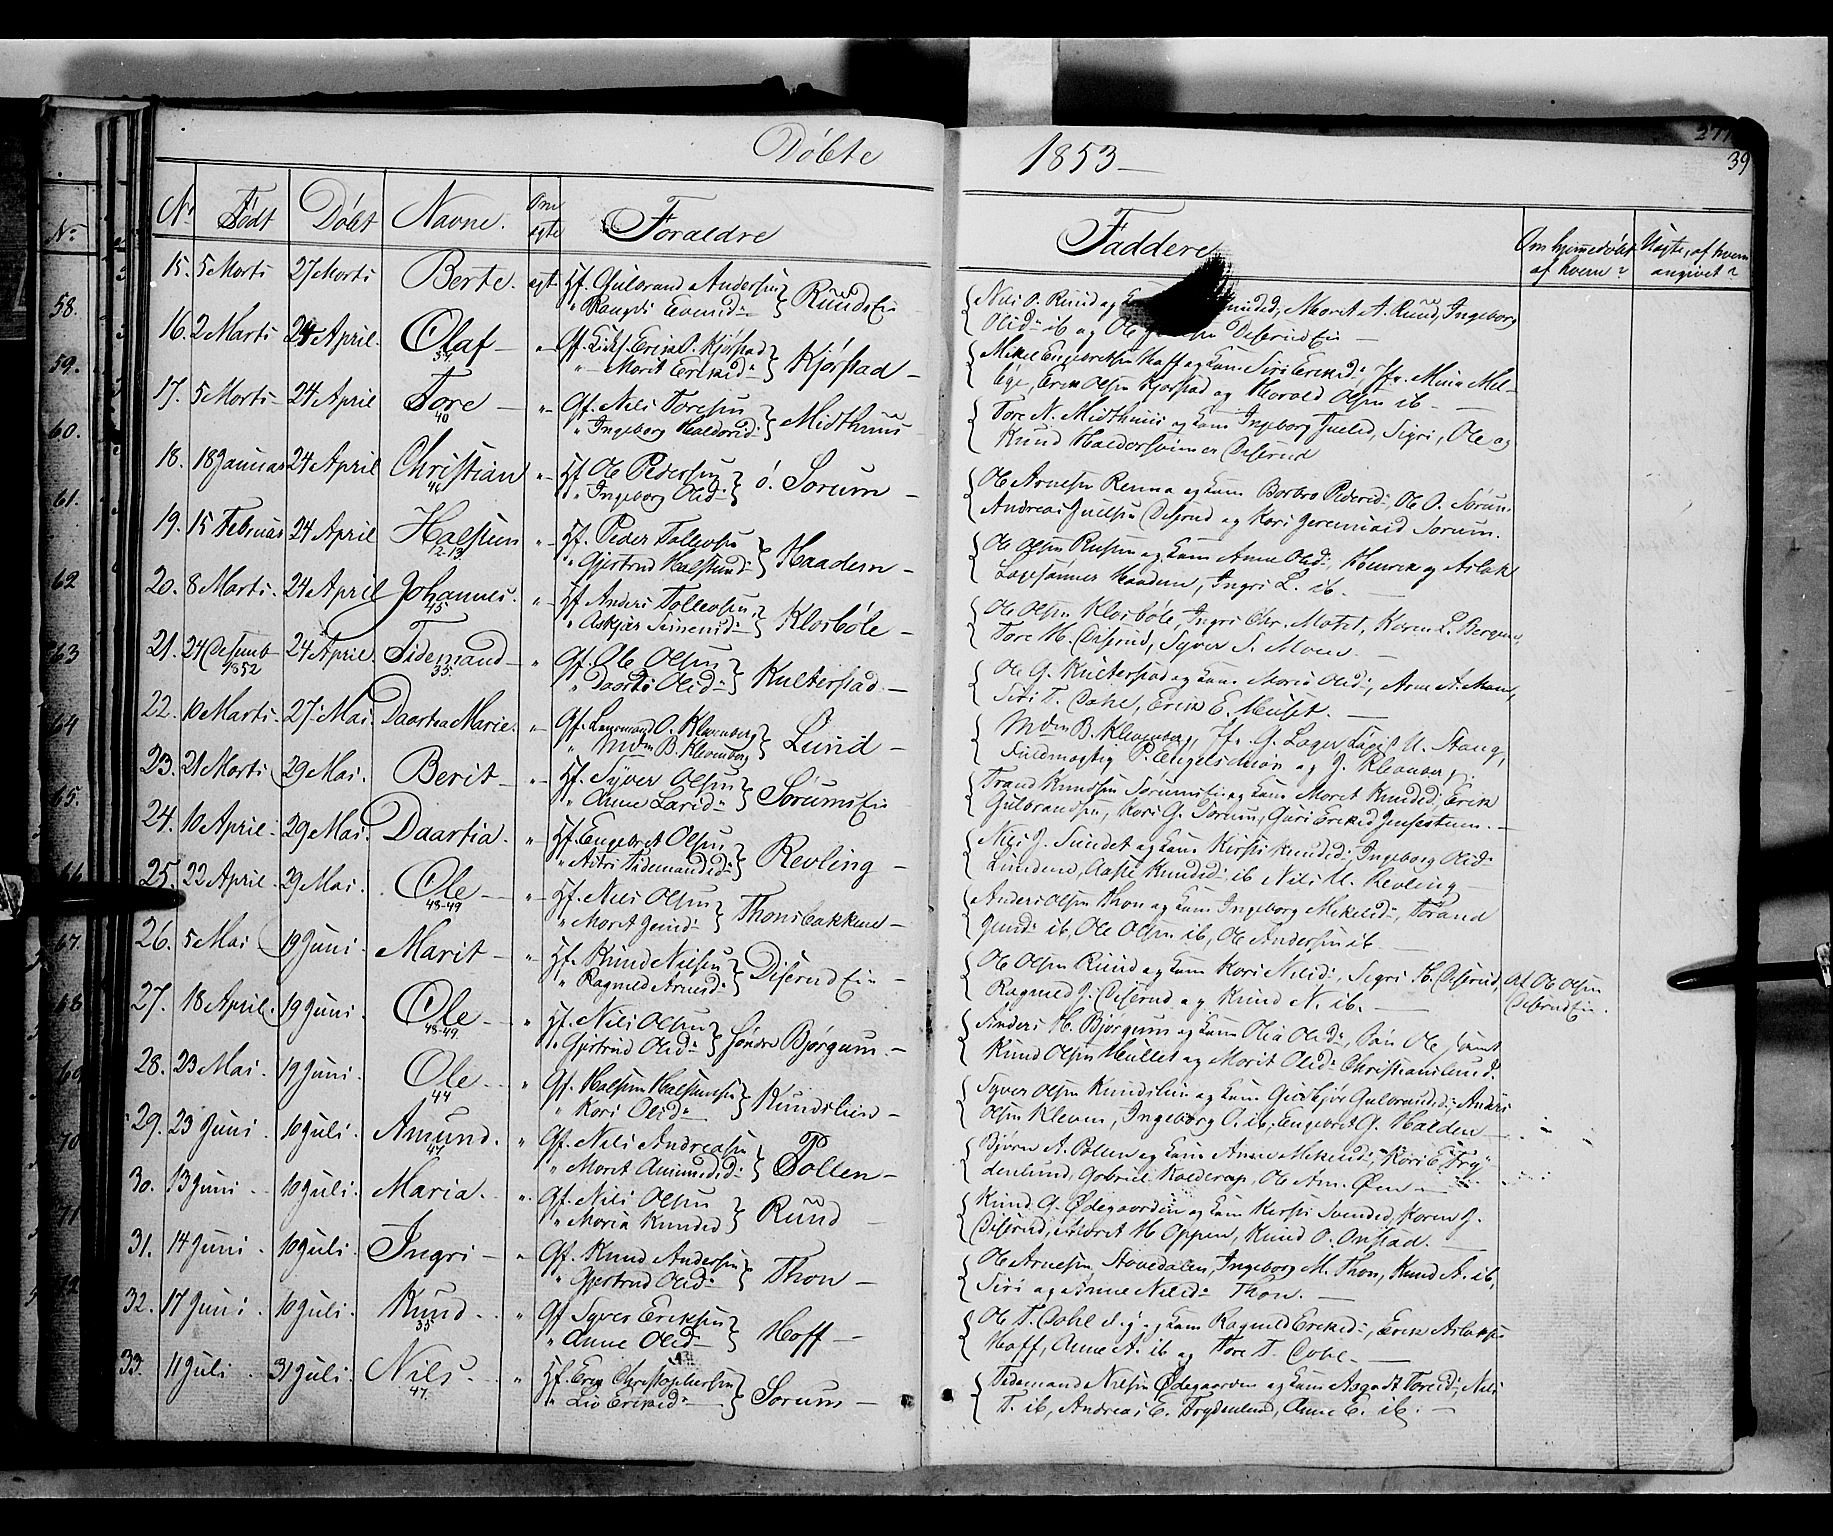 Døbte 1853 —
271
39
No Født Døbt Navne. Om egte Forældre Faddere Om hjemedøbt af hvem? Uægte, af hvem angivet?
15. 5 Marts 27 Marts Berte. egt. Hf. Gulbrand Andersen
Ruuds Ei
Nils O. Ruud og Moret A. Ruud, Ingeborg
Olsd: ib og Ole Diserud Ei —
16. 2 Marts 24 April. Olaf — " Erik O. Kjørstad
" Marit Eriksd: Kjørstad —
Mikel Engebretsen Hoff og Kone Siri Eriksd:
Erik Olsen Kjørstad og Harald Olsen ib —
17. 5 Marts 24 April Tore — 40 " Gf. Nils Toresen
" Ingeborg Haldorsd: Midthuus
Tore N. Midthuus og Kone Ingeborg Juelsd, Sigri, Ole og
Knud Diserud
18. 18 Januar 24 April Christian " Hf. Ole Pedersen
" Ingeborg Olsd: Ø. Sorum —
Ole Arnesen Renna og Kone Barbro Pedersd: Ole O. Sørum
Andreas Juelsen Diserud og Kari Jeremiasd Sorum.
19. 15 Februar 24 April Halsten 12-13 " Hf. Peder Tollevsen
" Gjertrud Halstensd: Haadem —
Ole Olsen og Kone Anne Olsd: Henrik og Aslak
Haadem, Ingri L. ib —
20. 8 Marts 24 April Johannes. 45 " Hf. Anders Tollevsen
" Klosbøle —
Ole Olsen Klosbøle, Ingri Chr. Karen L. Bergum,
Tore H. Diserud, Syver S. Moen —
21. 24 Desemb 1852 24 April. Tidemand — 35. " Gf. Ole Olsen
" Daarte Olsd: Kulterstad. —
Ole G. Kulterstad og Kone Marit Olsd:, Arne A. Moen,
Siri T. Dahl, Erik E. Huset. —
22. 10 Marts 27 Mai Daartea Marie. " Gf. O. Klevenberg
" Mdm B. Klevenberg Lund —
Mdm B. Klevenberg, Jfr. G. U. Stang,
Fuldmægtig P. Engelschiøn og J. Klevenberg.
23. 21 Marts 29 Mai. Berit — " Hf. Syver Olsen
" Anne Larsd: Sørums Ei
Trand Knudsen Sørums Ei og Kone Moret Knudsd; Erik
Gulbrandsen, Kari G. Sorum, Guri Eriksd —
24. 10 April 29 Mai. Daartia. " Hf. Engebret Olsen
" Tidemandsd: Revling —
Nils J. Sundet og Kone Kirsti Knudsd:, Ingeborg Olsd:
Lundene, Aase Knudsd: ib Nils U. Revling —
25. 22 April. 29 Mai. Ole — 48-49 " Hf. Nils Olsen
" Moret Thonsbakken —
Anders Olsen Thon og Kone Ingeborg Mikelsd:,
ib, Ole Olsen ib, Ole Andersen ib —
26. 5 Mai 19 Juni. Marit — " Hf. Knud Nilsen
" Ragnild Arnesd: Diserud Ei —
Ole Olsen Ruud og Kone Kari Nilsd:, Sigri K. Diserud,
Ragnild J. Diserud og Knud N. ib. —
Af Ole Olsen
Diserud Ei.
27. 18 April. 19 Juni. Ole — 48-49 " Hf. Nils Olsen
" Gjertrud Olsd: søndre Bjørgum. —
Anders H. Bjørgum og Kone Olia Olsd:, Ole
Knud Olsen Hullet og Marit Olsd: Christianslund.
28. 23 Mai. 19 Juni. Ole — 44 " Gf. Halsten Halstensen
" Kari Olsd: Knudslien —
Syver Olsen Knudslien og Kone Gulbrandsd:, Anders
Olsen Kleven, Ingeborg O. ib, Engebret G. Halden —
29. 23 Juni. 10 Juli. Amund. 47 " Gf. Nils Andreasen
" Moret Amundsd: Pollen —
Bjørn A. Pollen og Kone Anne Mikelsd:, Kari E. Fry-
denlund, Gabriel Kalderop, Ole Am. Øen —
30. 13 Juni — 10 Juli. Maria. " Gf. Nils Olsen
" Maria Knudsd Ruud —
Knud G. Ødegaarden og Kone Kersti Svendsd, Karen J.
Diserud, Moret H. Oppen, Knud O. Onstad. —
31. 14 Juni. 10 Juli. Ingri — " Gf. Knud Andersen
" Gjertrud Olsd: Thon —
Ole Arnesen Stovedalen, Ingeborg M. Thon, Knud A. ib,
Siri og Anne Nilsd: Thon. —
32. 17 Juni. 10 Juli. Knud. 35 " Gf. Syver Eriksen
" Anne Olsd: Hoff —
Ole T. Dahl og Kone Ragnild Eriksd:, Erik Aslaksen
Hoff, Anne A. ib og Tore T. Dahl —
33. 11 Juli. 31 Juli. Nils. 47. " Hf. Erik Christophersen
" Liv Eriksd: Sorum —
Tidemand Nielsen Ødegaarden og Kone Aagodt Toresd:, Nils
T. ib, Andreas E. Frydenlund, Anne E. ib. —
No
58.
59.
60.
61.
62
63
64
65.
67.
68
70
71
72